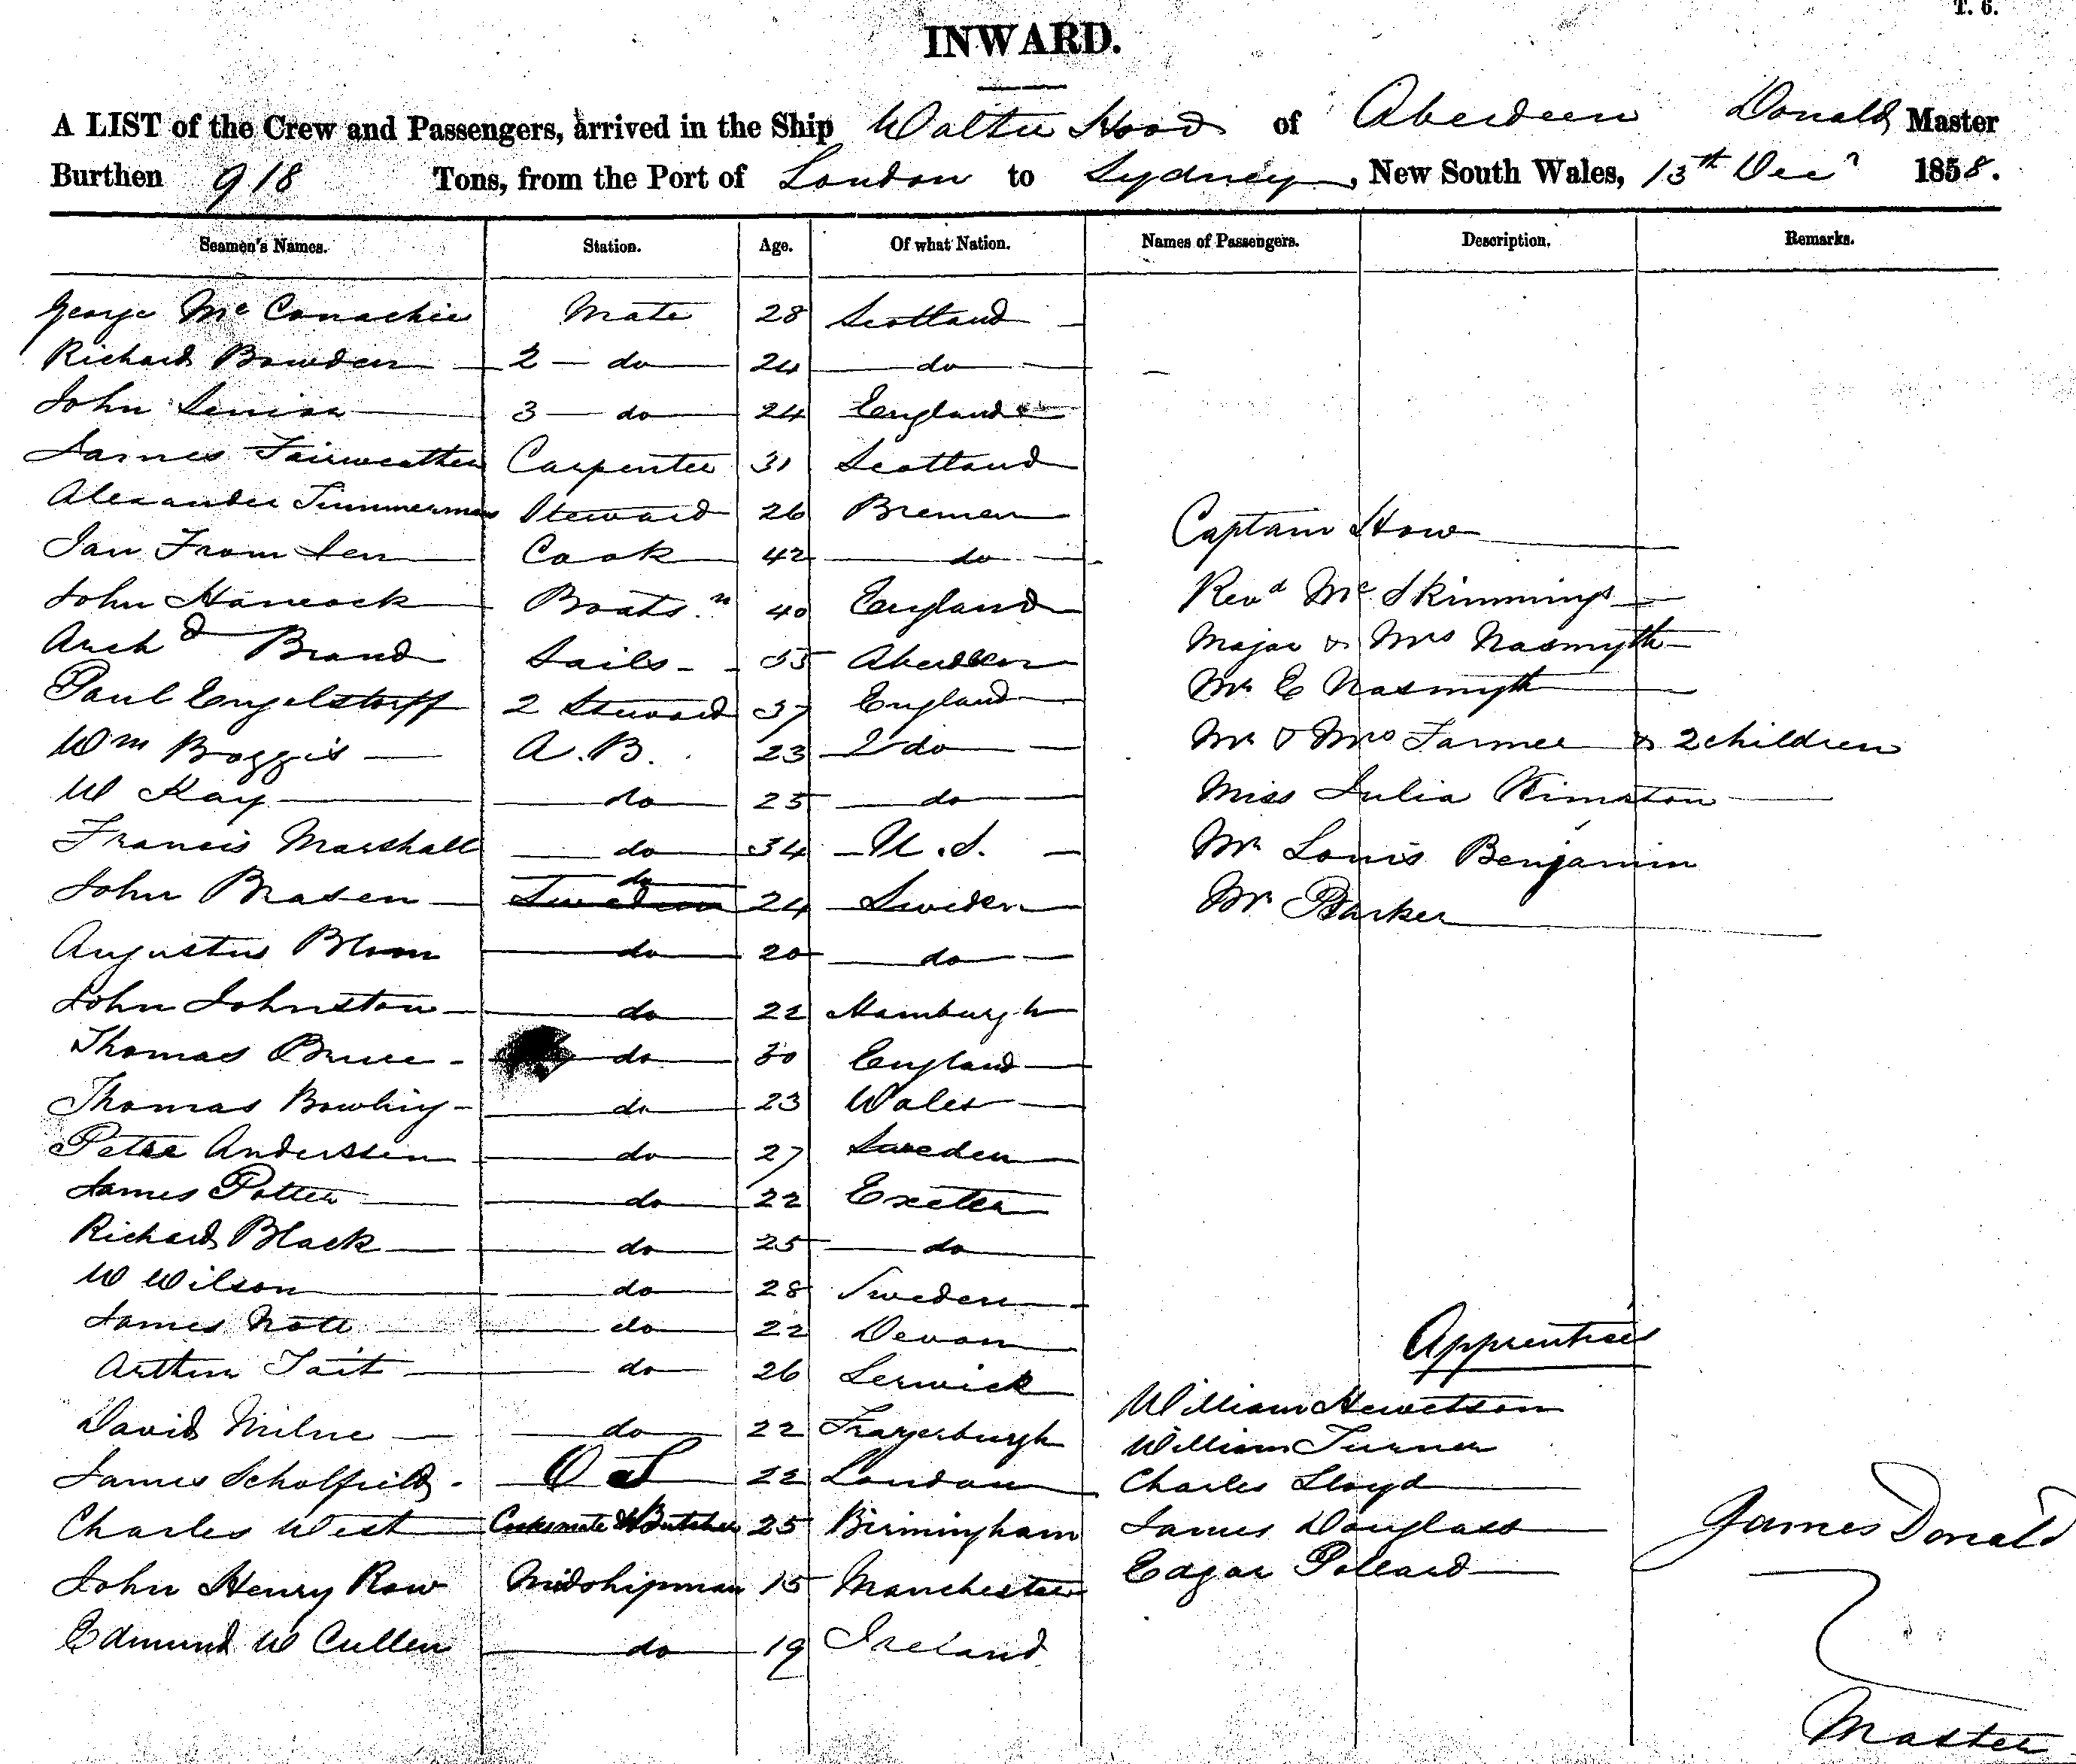 T. 6.
INWARD.
A LIST of the Crew and Passengers, arrived in the Ship Walter Hood of Aberdeen Donald Master
Burthen 918 Tons, from the Port of London to Sydney, New South Wales, 13th Decr 1858.
Seamen's Names. Station. Age. Of what Nation. Names of Passengers. Description. Remarks.
George McConachie Mate 28 Scotland
Richard Bowden 2 do 24 do
John 3 do 24 England
James Fairweather Carpenter 31 Scotland
Alexander Timmerman Steward 26 Bremen
Jan From Cook 42 do
Captain How
John Hancock Boatsn 40 England
Revd McSkimmings
Archd Brand Sails 55 Aberdeen
Major & Mrs Nasmyth
Paul Engelstorff 2 Steward 37 England
Mr E Nasmyth
Wm Boggis A.B. 23 do
Mr & Mrs Farmer & 2 children
W Kay do 25 do
Miss Julia
Francis Marshall do 34 U.S.
Mr Louis Benjamin
John Brasen do 24 Sweden
Mr Barker
Augustus Blom do 20 do
John Johnston do 22 Hamburgh
Thomas Bruce do 30 England
Thomas Bowling do 23 Wales
Peter Anderssen do 27 Sweden
James Potter do 22 Exeter
Richard Black do 25 do
W Wilson do 28 Sweden
James Nott do 22 Devon
Apprentices
Arthur Tait do 26 Lerwick
William Hewetson
David Milne do 22 Frazerburgh
William Turner
James Scholfield O S 22 London
Charles Lloyd
Charles West Cooksmate & Butcher 25 Birmingham
James Douglass
James Donald
John Henry Row Midshipman 15 Manchester
Edgar Pollard
Edmund W Cullen do 19 Ireland
Master